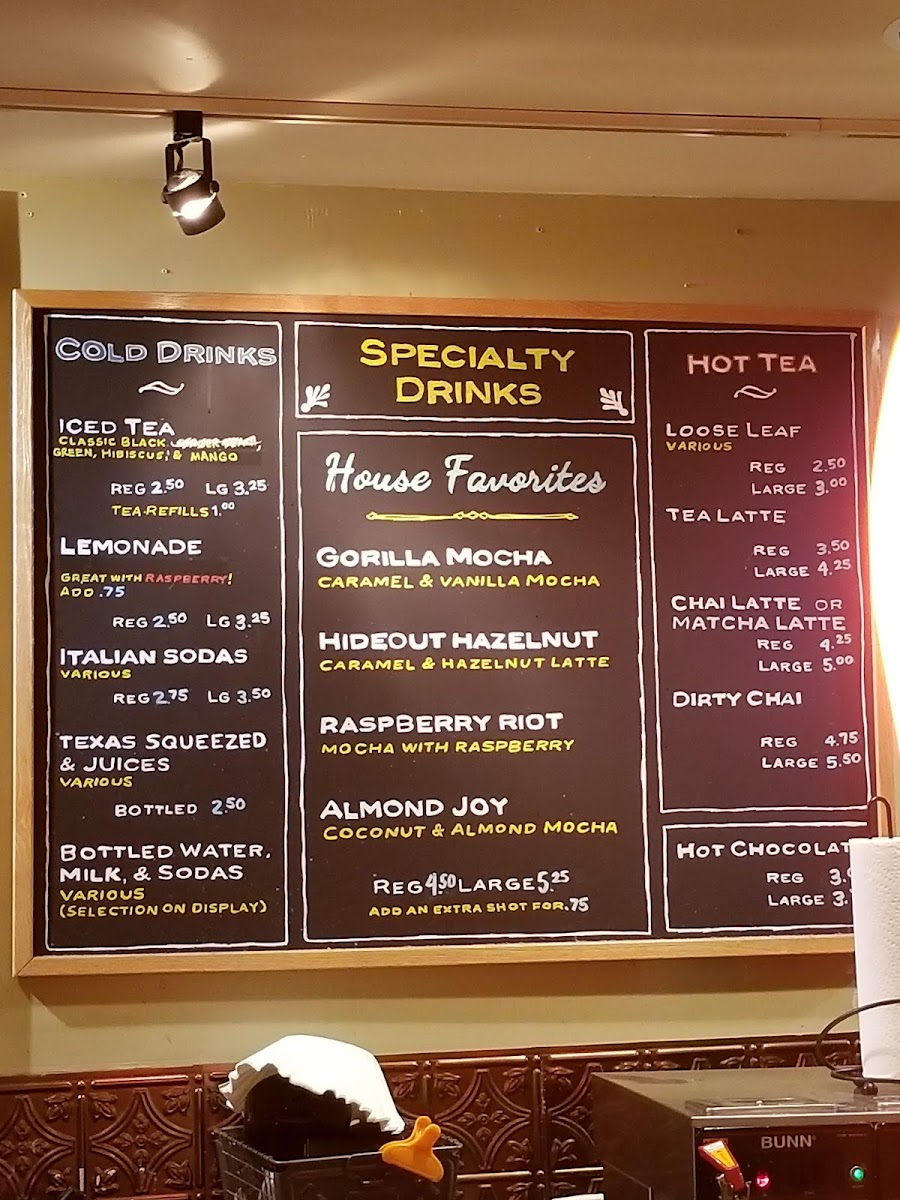 COLD DRINKS
ICED TEA
CLASSIC BLACK
GREEN, HIBISCUS, & MANGO
REG 2.50 LG 3.25
TEA REFILLS 1.00
LEMONADE
GREAT WITH RASPBERRY!
ADD .75
REG 2.50 LG 3.25
ITALIAN SODAS
VARIOUS
REG 2.75 LG 3.50
TEXAS SQUEEZED
& JUICES
VARIOUS
BOTTLED 2.50
BOTTLED WATER,
MILK, & SODAS
VARIOUS
(SELECTION ON DISPLAY)
SPECIALTY
DRINKS
House Favorites
GORILLA MOCHA
CARAMEL & VANILLA MOCHA
HIDEOUT HAZELNUT
CARAMEL & HAZELNUT LATTE
RASPBERRY RIOT
MOCHA WITH RASPBERRY
ALMOND JOY
COCONUT & ALMOND MOCHA
REG 4.50 LARGE 5.25
ADD AN EXTRA SHOT FOR .75
HOT TEA
LOOSE LEAF
VARIOUS
REG 2.50
LARGE 3.00
TEA LATTE
REG 3.50
LARGE 4.25
CHAI LATTE OR
MATCHA LATTE
REG 4.25
LARGE 5.00
DIRTY CHAI
REG 4.75
LARGE 5.50
HOT CHOCOLAT
REG 3.
LARGE 3.
BUNN